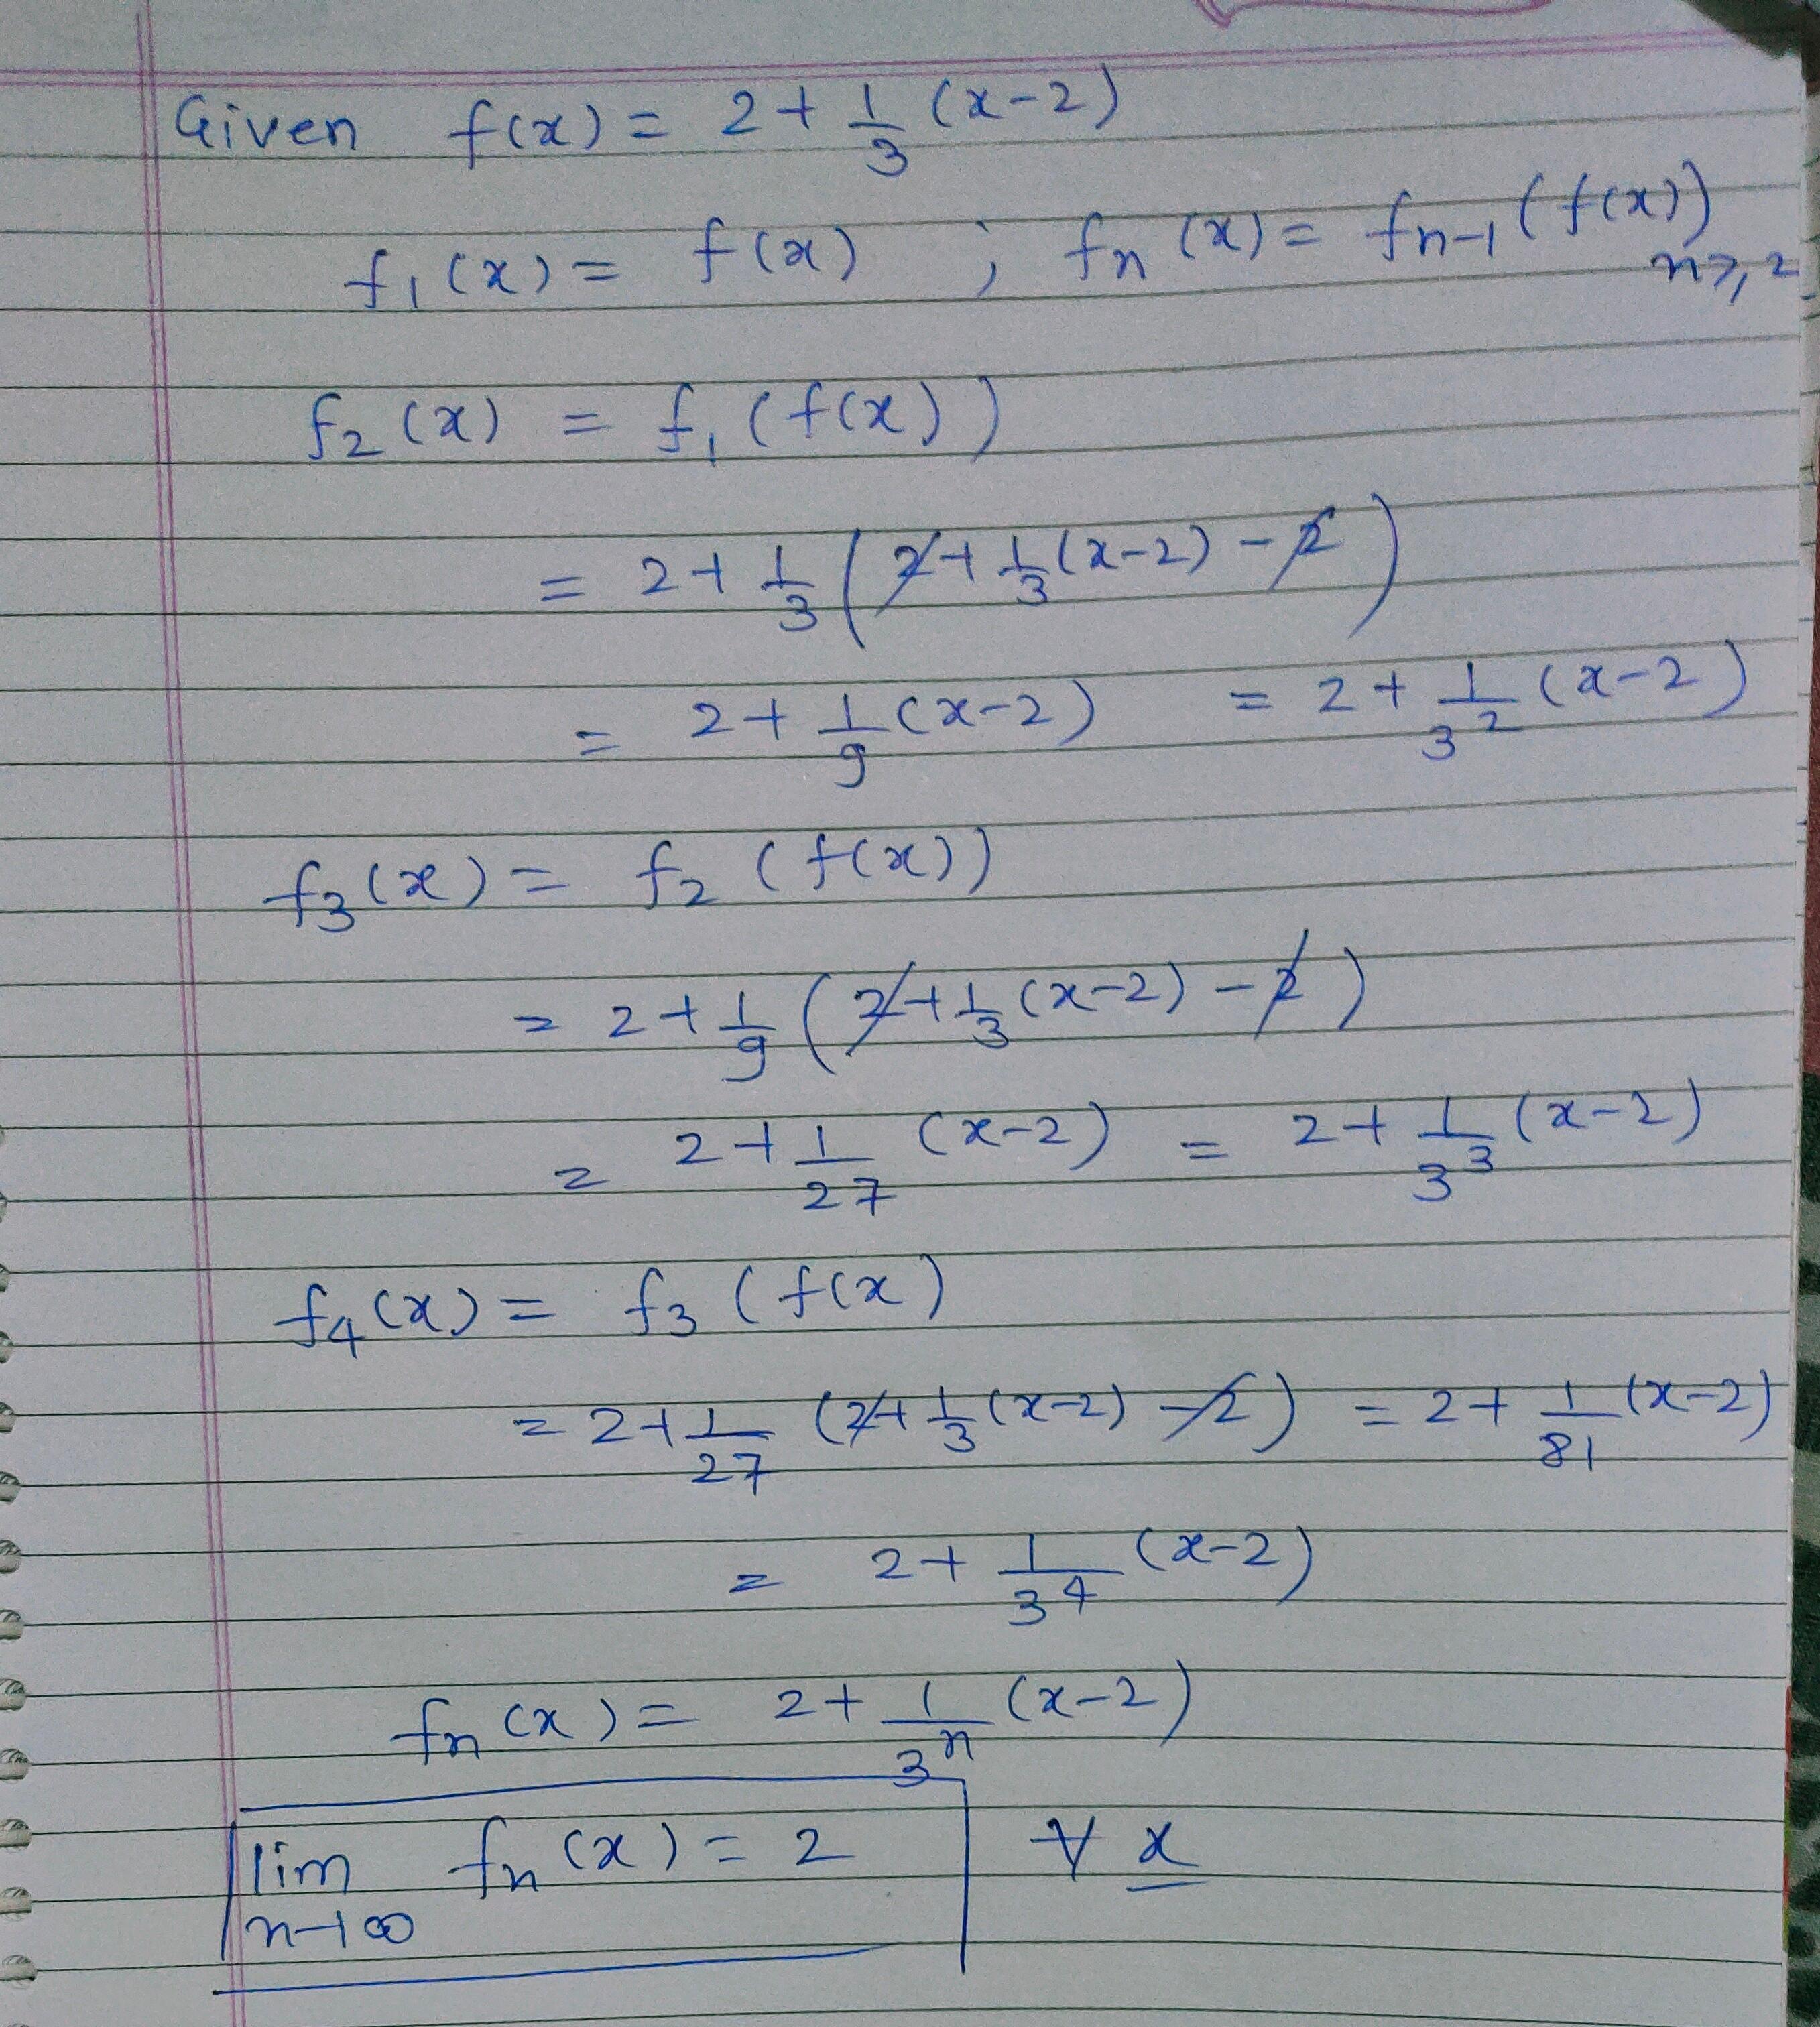 Given f(x) = 2 + 1/3 (x-2)
f₁(x) = f(x) ; fₙ(x) = fₙ₋₁(f(x)) n ≥ 2
f₂(x) = f₁(f(x))
= 2 + 1/3 (2 + 1/3 (x-2) - 2)
= 2 + 1/9 (x-2) = 2 + 1/3² (x-2)
f₃(x) = f₂(f(x))
= 2 + 1/9 (2 + 1/3 (x-2) - 2)
= 2 + 1/27 (x-2) = 2 + 1/3³ (x-2)
f₄(x) = f₃(f(x)
= 2 + 1/27 (2 + 1/3 (x-2) - 2) = 2 + 1/81 (x-2)
= 2 + 1/3⁴ (x-2)
fₙ(x) = 2 + 1/3ⁿ (x-2)
lim fₙ(x) = 2 ∀ x
n→∞